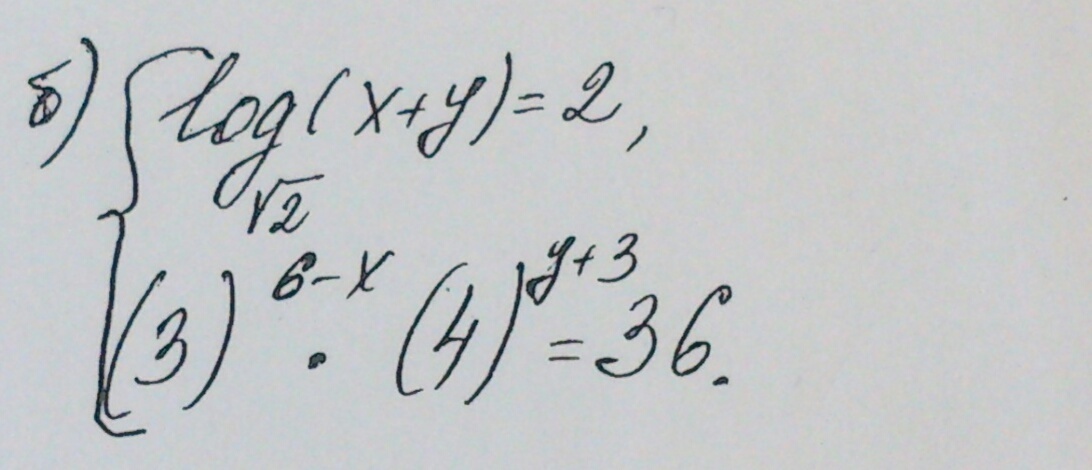 б) { log_√2 (x+y) = 2,
(3)^(6-x) · (4)^(y+3) = 36.